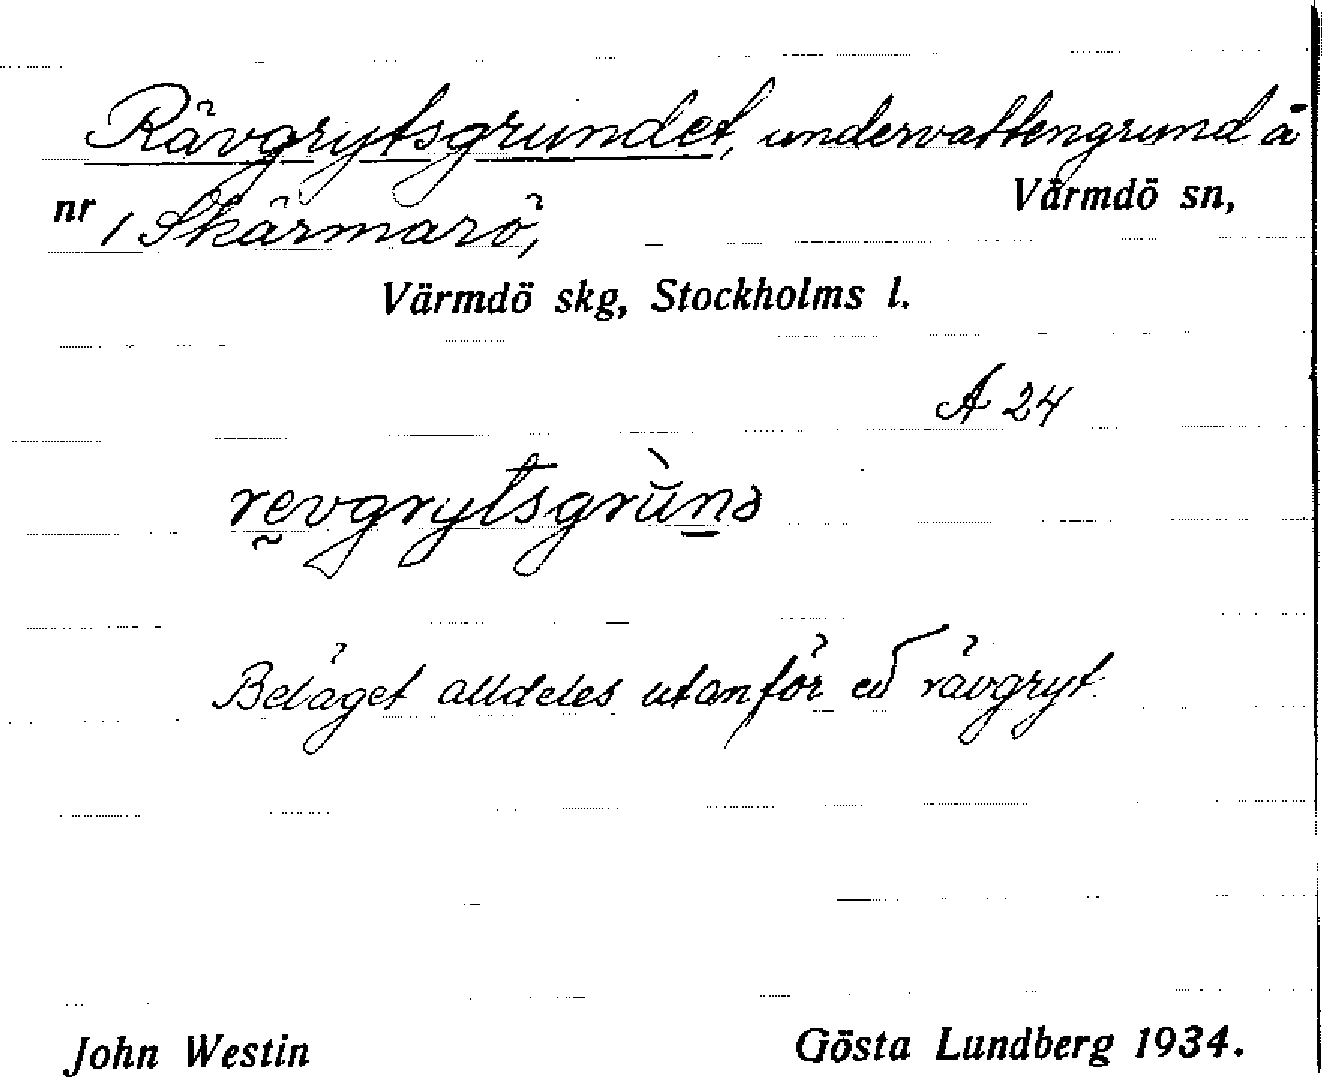 Rävgrytsgrundet, undervattengrund å
nr 1 Skärmarö, Värmdö sn,
Värmdö skg, Stockholms l.
A 24
revgrytsgrùnd
Beläget alldeles utanför ett rävgryt.
John Westin Gösta Lundberg 1934.